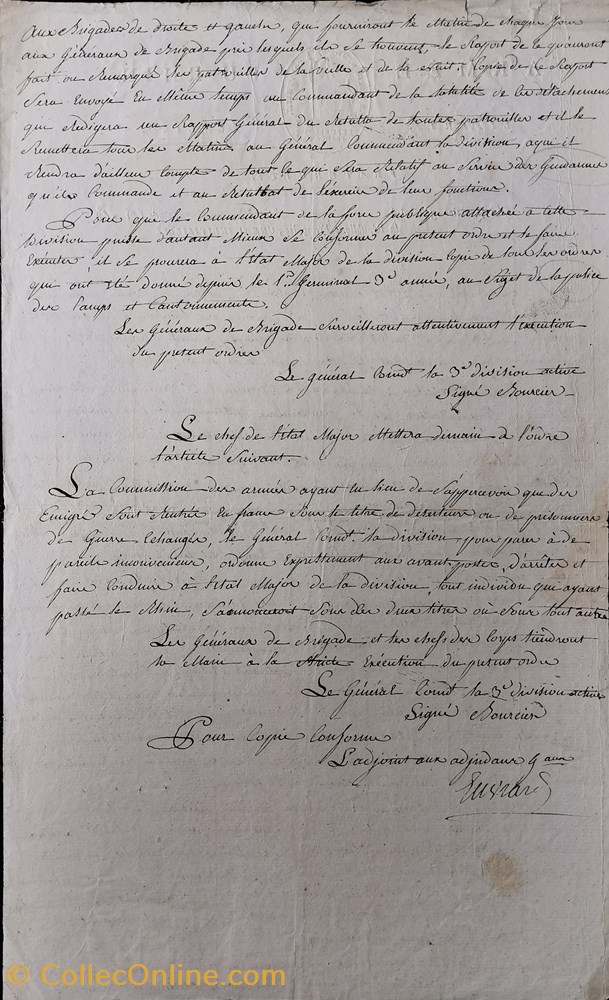 aux Brigades de droite et gauche, qui fourniront le Matin de chaque Jour
aux Généraux de Brigade près lesquels ils se trouvent, le Raport de ce qu'auront
fait ou Remarqué les patrouilles de la Veille et de la Nuit. Copie de ce Raport
Sera Envoyé En Même temps au Commandant de la totalité de ces détachemens
qui Rédigera un Rapport Général du Résultat de toutes patrouilles et il le
Remettera tous les Matins au Général Commendant la division, a qui il
Rendra d'ailleur Compte de tout ce qui Sera Relatif au Service des Gendarmes
qu'il Commande et au Resultat de l'éxercice de leur fonctions.
Pour que le Commendant de la force publique attachée a cette
division puisse d'autant Mieux Se Conformer au présent ordre et le faire
Exécuter, il Se pourvera à l'Etat Major de la division Copie de tous les ordres
qui ont été donné depuis le 1er Germinal 3e année, au Sujet de la justice
des Camps et Cantonnements.
Les Généraux de Brigade Surveilleront attentivement l'éxécution
du present ordre
Le général Comdt la 3e division active
Signé Bourcier
Le chef de l'état Major Mettera demain à l'ordre
l'article Suivant.
La Commission des armées ayant eu lieu de S'appercevoir que des
Emigré Sont Rentré En france Sous le titre de déserteurs ou de prisonniers
de Guerre Echangés, le Général Comdt la division, pour parer à de
pareils inconvenients, ordonne Expressement aux avant postes, d'arrêter et
faire Conduire à l'état Major de la division, tout individu qui ayant
passé le Rhin, S'annonceroit Sous ces deux titres ou Sous tout autre
Les Généraux de Brigade et les chefs des Corps tiendront
la Main à la Stricte Exécution du présent ordre
Le Général Comdt la 3e division active
Signé Bourcier
Pour Copie Conforme
L'adjoint aux adjudans Gaux
© CollecOnline.com